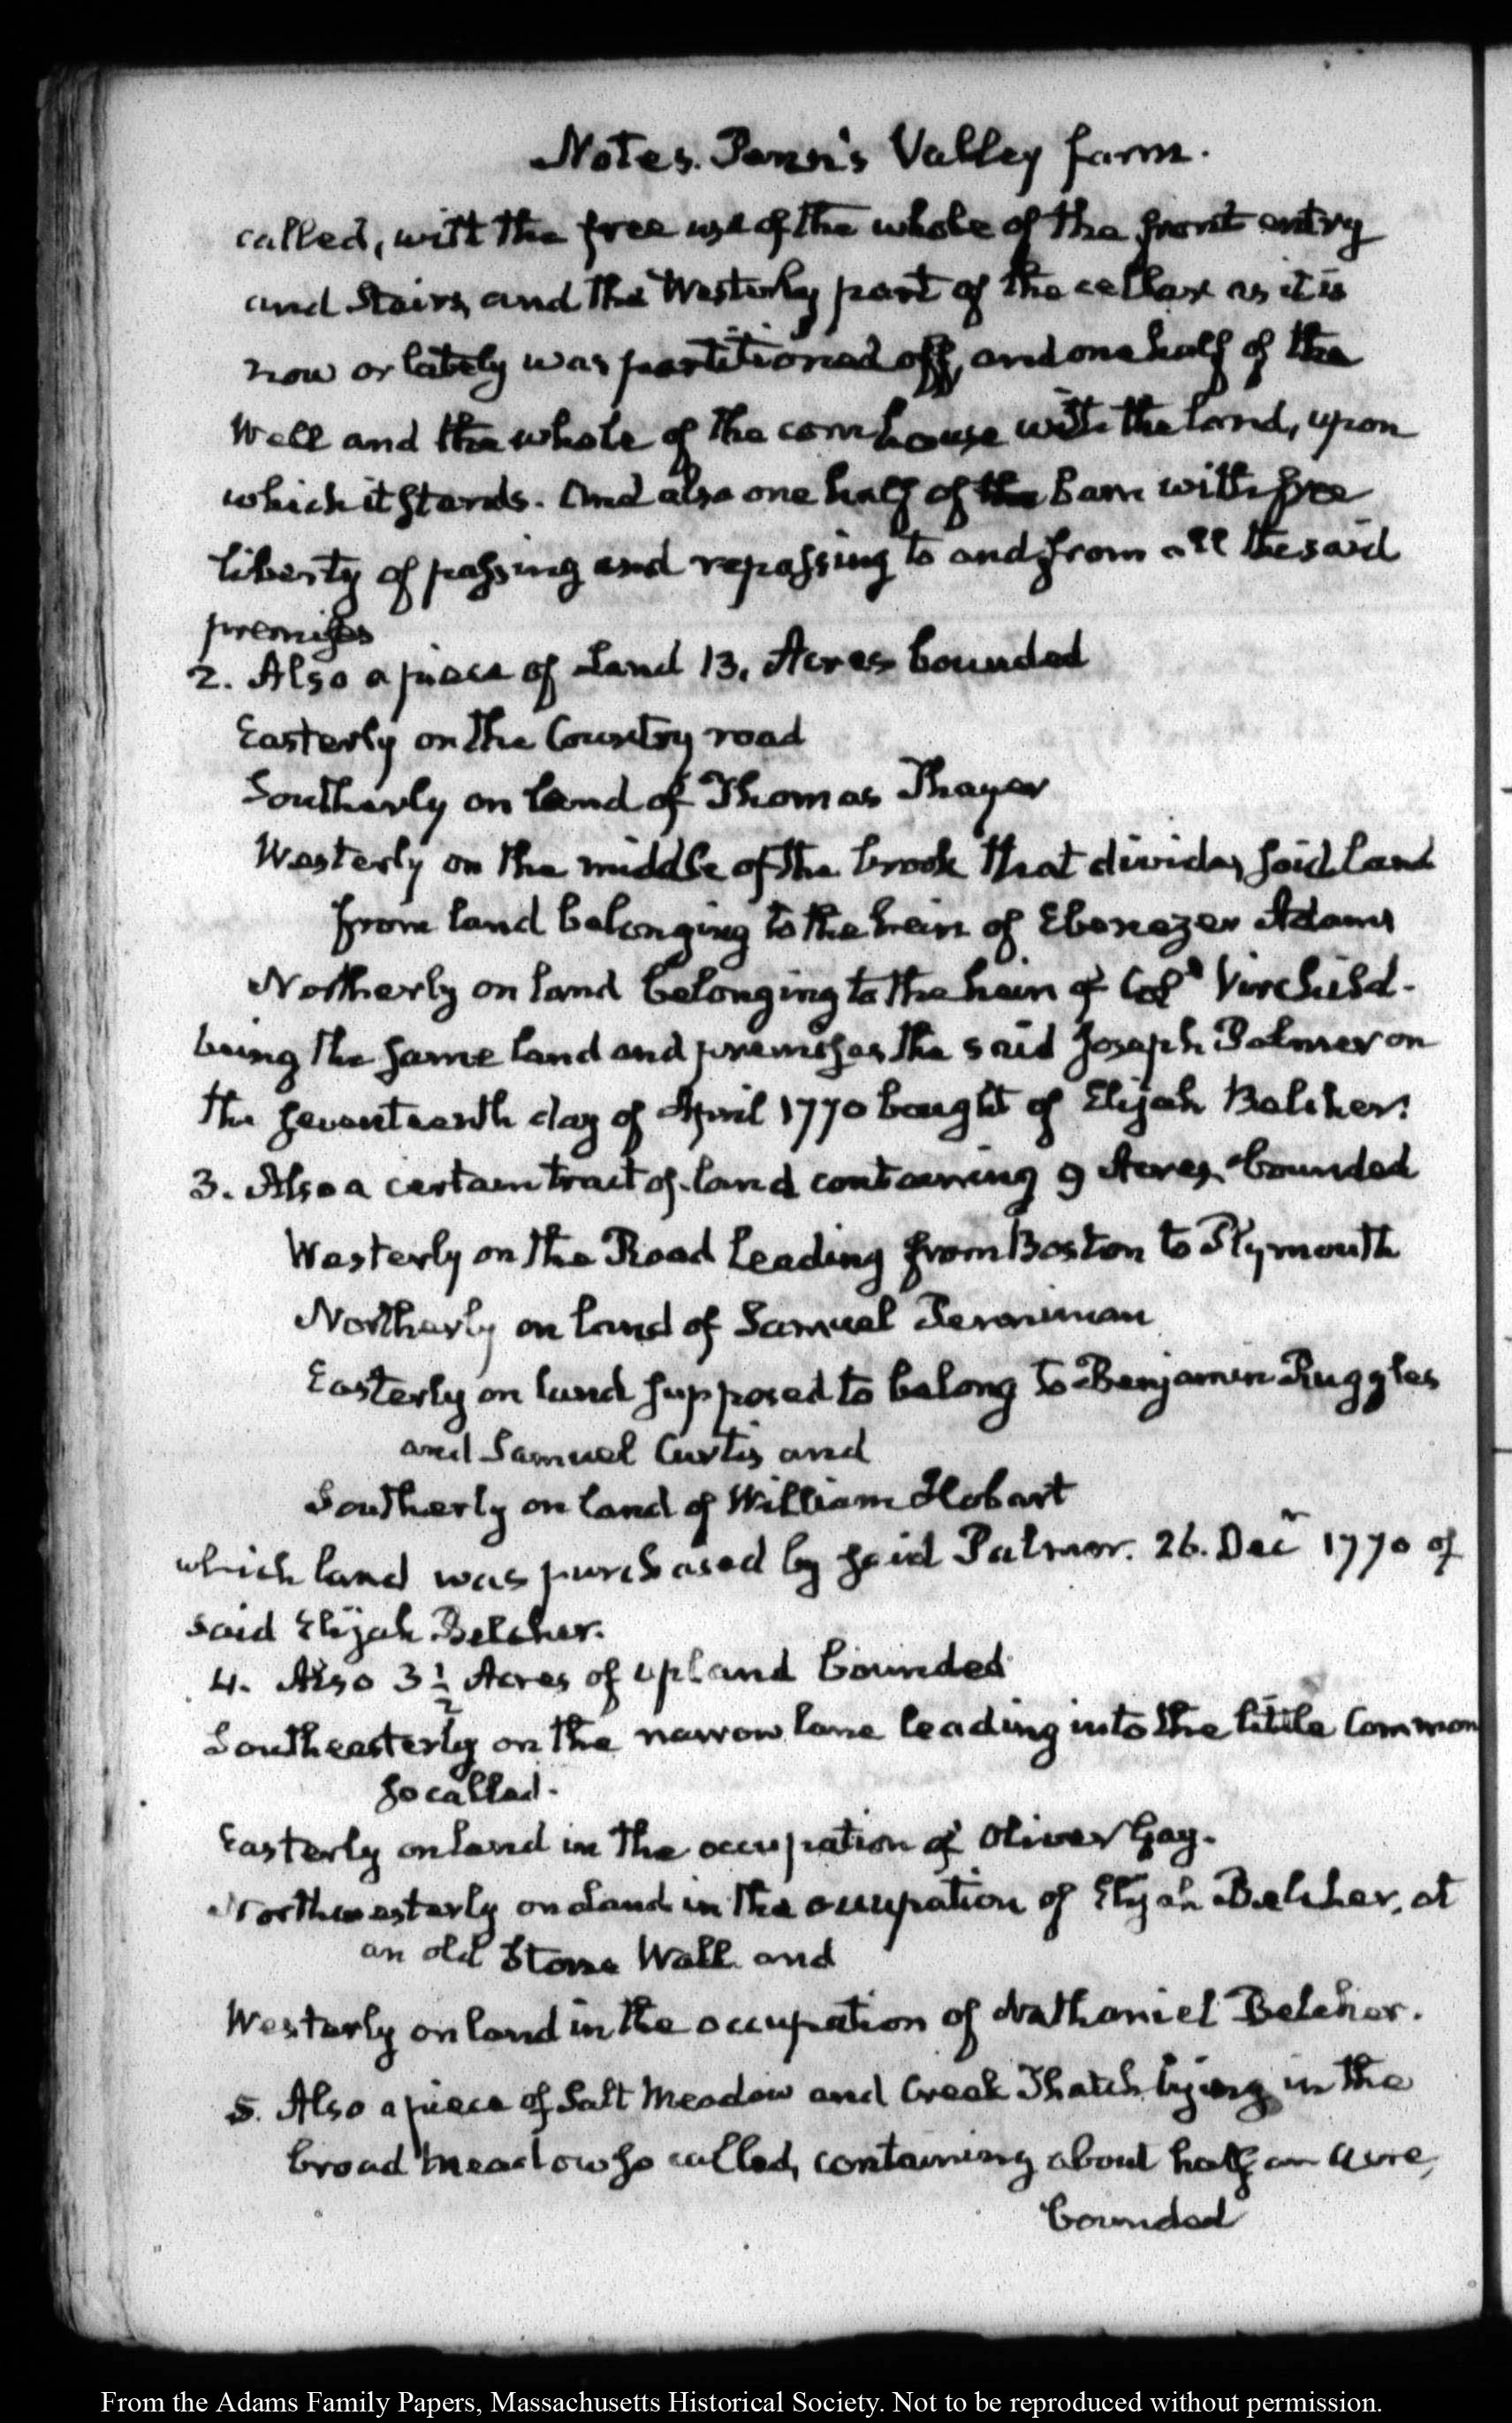 Notes. Penn's Valley farm.
called, with the free use of the whole of the front entry
and Stairs, and the Westerly part of the cellar as it is
now or lately was partitioned off, and one half of the
Well and the whole of the corn house with the land, upon
which it stands. And also one half of the Barn with free
liberty of passing and repassing to and from all the said
premises
2. Also a piece of Land 13. Acres bounded
Easterly on the Country road
Southerly on land of Thomas Thayer
Westerly on the middle of the brook that divides said land
from land belonging to the heirs of Ebenezer Adams
Northerly on land belonging to the heirs of Vinchild.
being the same land and premises the said Joseph Palmer on
the seventeenth day of April 1770 bought of Elijah Belcher.
3. Also a certain tract of land containing 9 Acres. bounded
Westerly on the Road leading from Boston to Plymouth
Northerly on land of Samuel
Easterly on land supposed to belong to Benjamin Ruggles
and Samuel Curtis and
Southerly on land of William Hobart
which land was purchased by said Palmer. 26. Decr 1770 of
said Elijah Belcher.
4. Also 3 1/2 Acres of upland bounded
Southeasterly on the narrow lane leading into the little Common
so called.
Easterly on land in the occupation of Oliver Gay.
Northwesterly on Land in the occupation of Elijah Belcher, at
an old Stone Wall and
Westerly on land in the occupation of Nathaniel Belcher.
5. Also a piece of Salt Meadow and Creek Thatch lying in the
broad meadow so called, containing about half an acre,
bounded
From the Adams Family Papers, Massachusetts Historical Society. Not to be reproduced without permission.